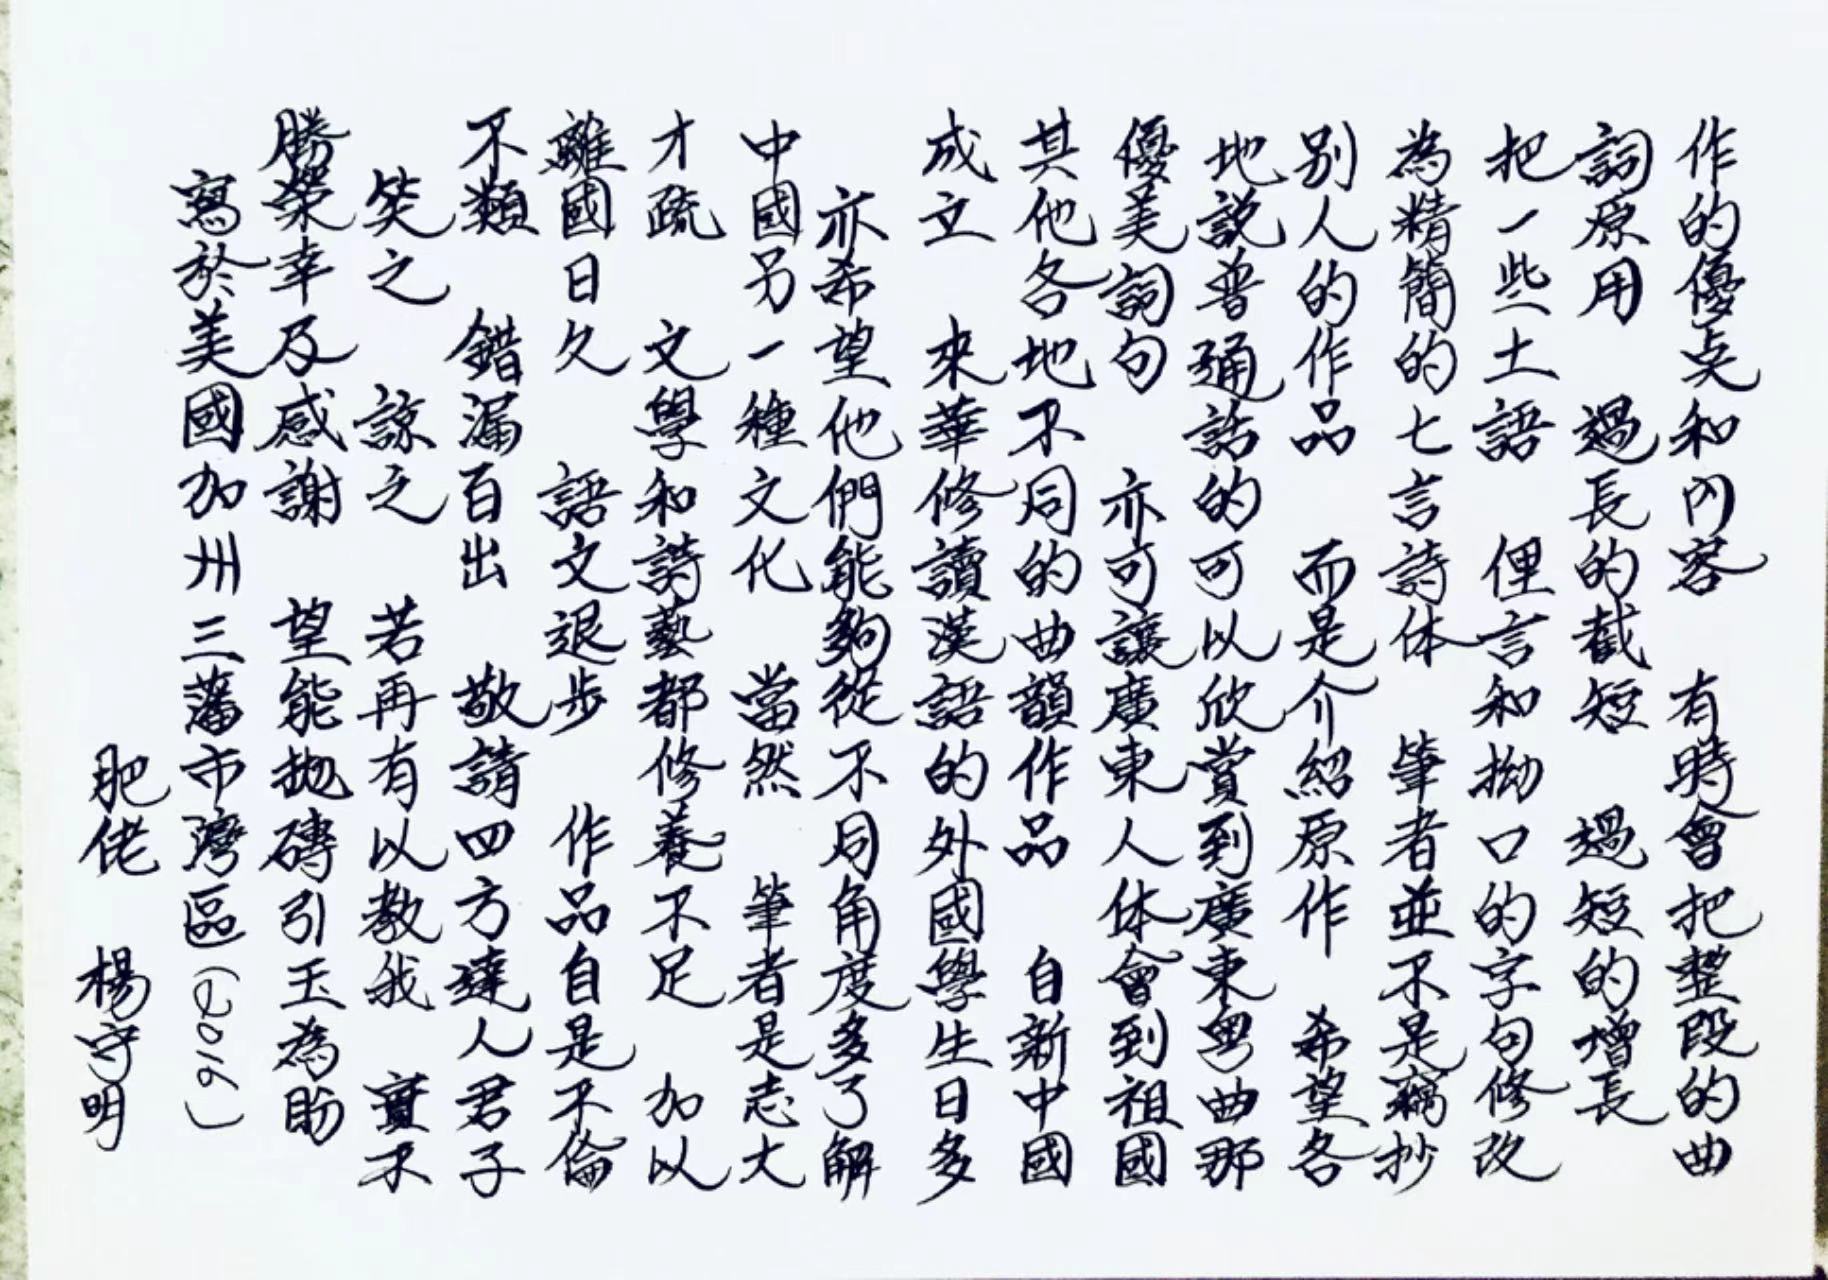 作的優点和內容　有時會把整段的曲
詞原用　過長的截短　過短的增長
把一些土語　俚言和拗口的字句修改
為精簡的七言詩体　筆者並不是竊抄
别人的作品　而是介紹原作　希望各
地説普通話的可以欣賞到廣東粵曲那
優美詞句　亦可讓廣東人体會到祖國
其他各地不同的曲韻作品　自新中國
成立　來華修讀漢語的外國學生日多
亦希望他們能夠從不同角度多了解
中國另一種文化　當然　筆者是志大
才疏　文學和詩藝都修養不足　加以
離國日久　語文退步　作品自是不倫
不類　錯漏百出　敬請四方達人君子
笑之　諒之　若再有以教我　實不
勝榮幸及感謝　望能拋磚引玉為盼
寫於美國加州三藩市灣區(2016)
肥佬　楊守明